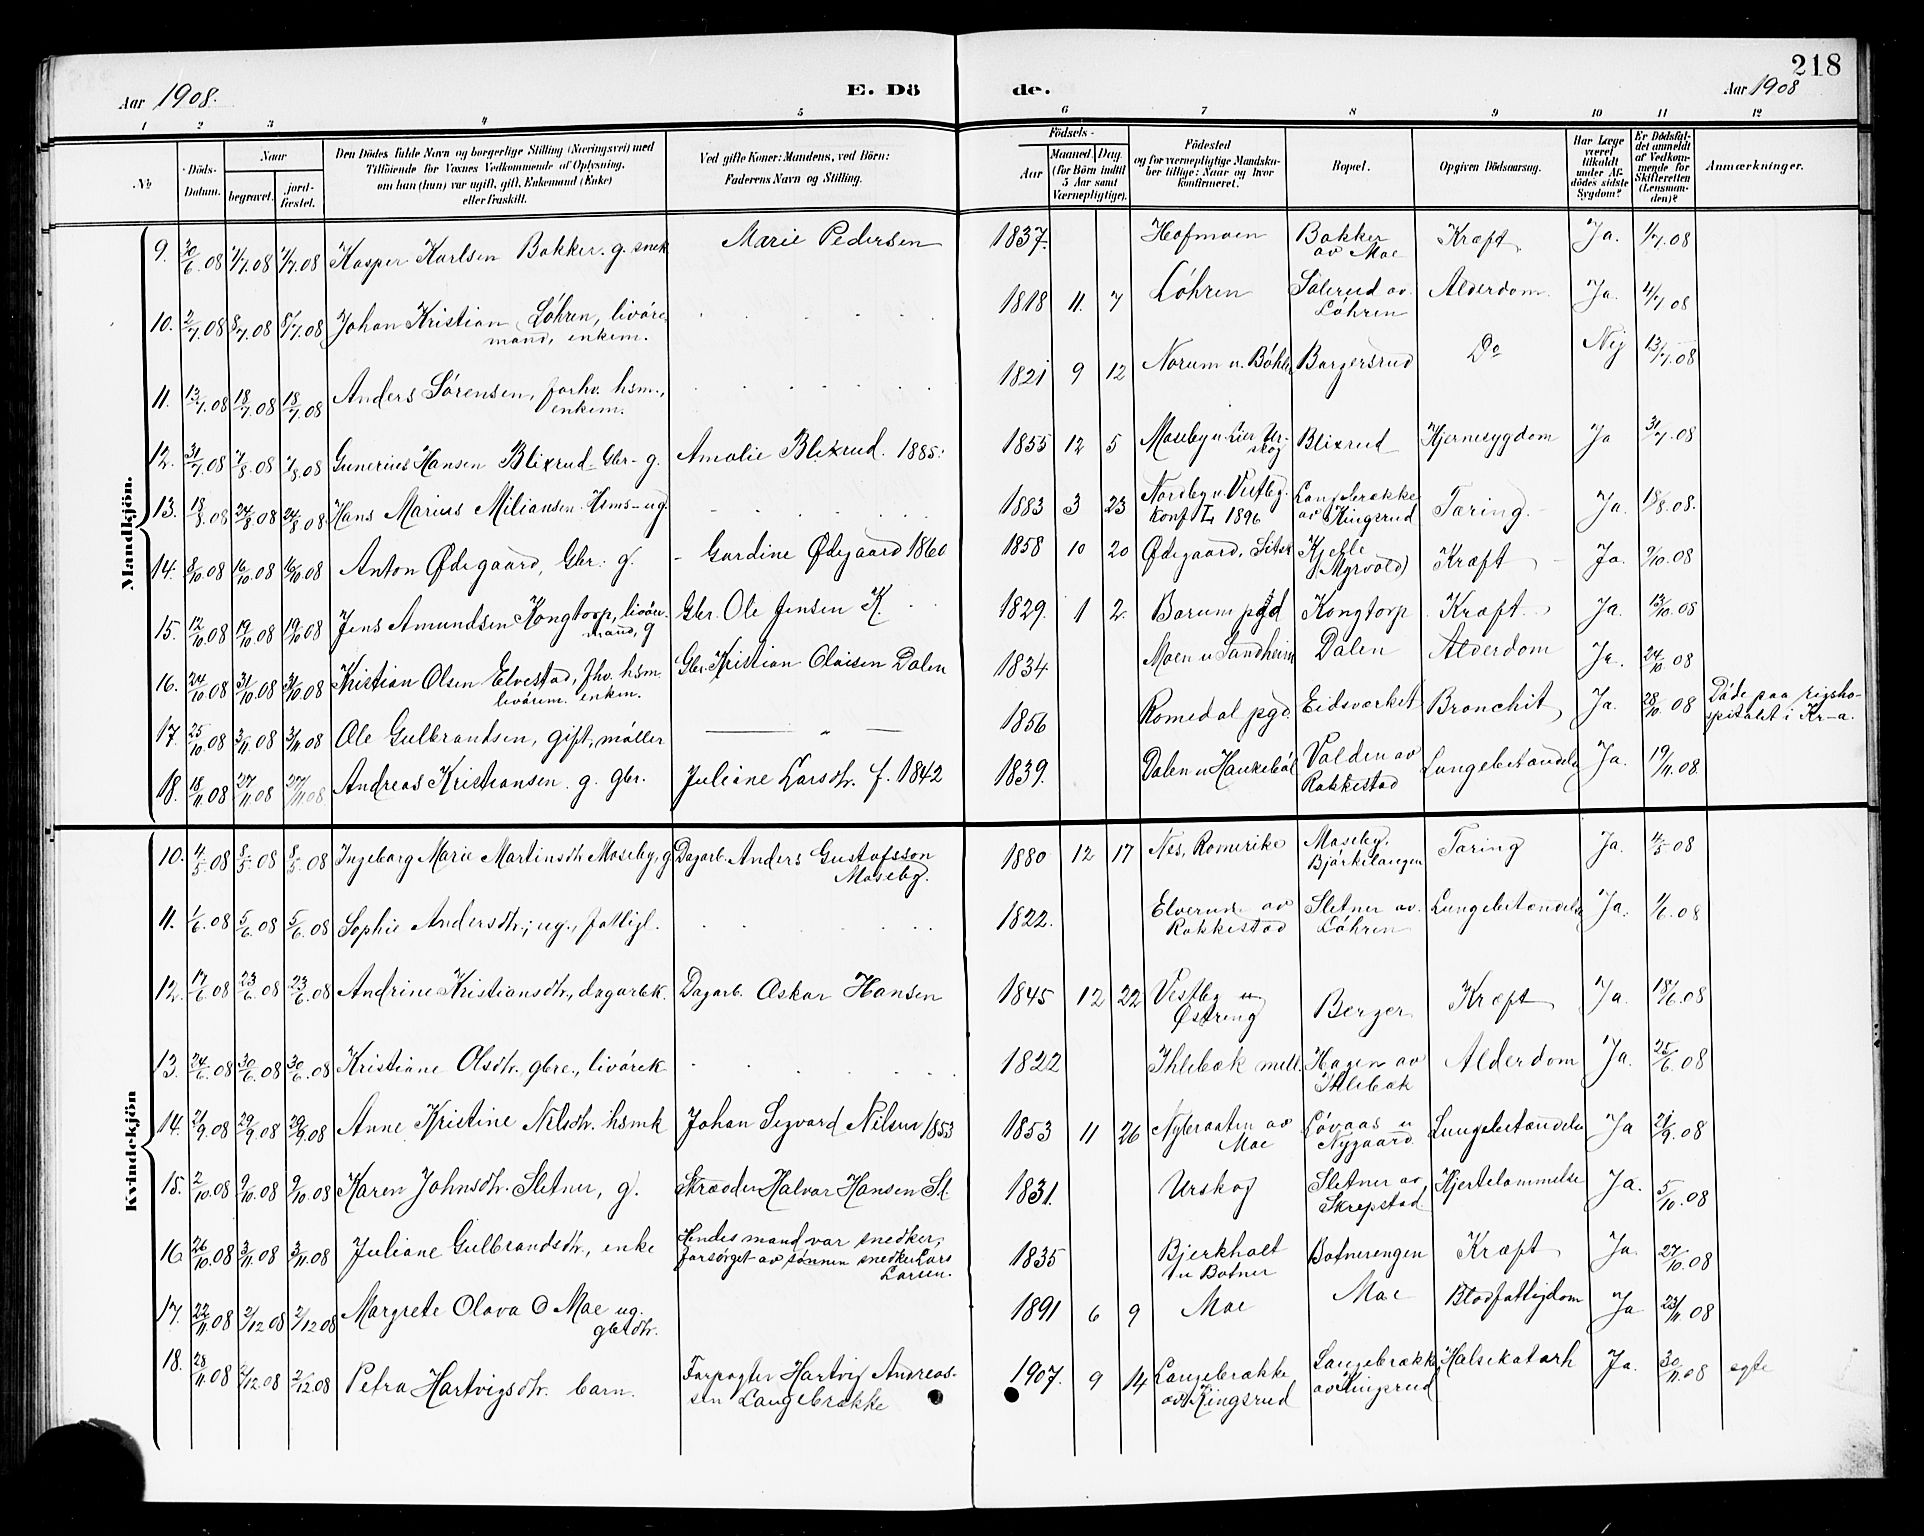 218
Aar 1908. E. Dö de. Aar 1908
1 2 3 4 5 6 7 8 9 10 11 12
No
Döds-Datum.
Naar
begravet. jordfæstet.
Den Dödes fulde Navn og borgerlige Stilling (Næringsvei) med
Tilföiende for Voxnes Vedkommende af Oplysning,
om han (hun) var ugift, gift, Enkemand (Enke)
eller fraskilt.
Ved gifte Koner: Mandens, ved Börn:
Faderens Navn og Stilling.
Födsels-
Aar
Maaned. Dag.
(for Börn indtil
5 Aar samt
Værnepligtige).
Födested
og for værnepligtige Mandskaber tillige: Naar og hvor
konfirmeret.
Bopæl.
Opgiven Dödsaarsag.
Har Læge
været
tilkaldt
under Afdödes sidste
Sygdom?
Er Dödsfaldet anmeldt
af Vedkommende for
Skifteretten
(Lensmanden)?
Anmærkninger.
Mandkjön.
9. 30/6.08 4/7.08 4/7.08 Kasper Karlsen Bakker. g. snek Marie Pedersen 1837. Hofmoen Bakker av Moe Kræft Ja. 1/7.08
10. 2/7.08 8/7.08 8/7.08 Johan Kristian Löhren, livöremand, enkem. 1818 11. 7 Löhren Sölerud av Löhren Alderdom. Ja. 4/7 08
11. 13/7.08 18/7.08 18/7.08 Anders Sörensen, forhv. hsm., enkem. 1821 9 12 Norum u. Böhler Borgersrud Do Nej 13/7.08
12. 31/7.08 7/8.08 7/8.08 Gunerius Hansen Blixrud Gbr. g. Amalie Blixrud. 1885. 1855 12 5 Moseby u. Lier Urskog Blixrud Hjernesygdom Ja 31/7.08
13. 18/8.08 24/8.08 24/8.08 Hans Marius Miliansen Hsms-ug. 1883 3 23 Nordby u. Vestby. konf L 1896 Langebrække av Kingsrud Tæring. Ja. 18/8.08.
14. 8/10.08 16/10.08 16/10.08 Anton Ødegaard, Gbr. g. Gurdine Ødegaard 1860 1858 10 20 Ødegaard, Sitsk Kjelle (Myrvold) Kræft Ja. 9/10.08
15. 12/10.08 19/10.08 19/10.08 Jens Amundsen Kongtorp, livöremand, g Gbr. Ole Jensen K. 1829. 1 2. Bærum pgd Kongtorp Kræft. Ja. 13/10.08
16. 24/10.08 31/10.08 31/10.08 Kristian Olsen Elvestad, fhv. hsm. livörem. enkem. Gbr. Kristian Olaisen Dalen 1834 Moen u Sandheim Dalen Alderdom Ja. 24/10 08
17. 25/10.08 3/11.08 3/11.08 Ole Gulbrandsen, gift, møller — „ — 1856 Romedal pgd. Eidsverket Bronchit Ja. 28/10.08 Döde paa rigshospitalet i Kr-a.
18. 18/11.08 27/11.08 27/11.08 Andreas Kristiansen g. gbr. Juliane Larsdtr. f. 1842 1839. Dalen u Haukeböl Valden av Rakkestad Lungebetændelse Ja. 19/11.08.
Kvindekjön
10. 4/5.08 8/5.08 8/5.08 Ingeborg Marie Martinsdtr Moseby, g Dagarb. Anders Gustafsson Moseby. 1880 12 17 Nes, Romerike Moseby, Bjørkelangen Tæring Ja. 4/5 08
11. 1/6.08 5/6.08 5/6.08 Sophie Andersdtr.; ug., fattigl. 1822. Elverud av Rakkestad Sletner av Löhren Lungebetændelse Ja. 1/6.08
12. 17/6.08 23/6.08 23/6.08 Andrine Kristiansdtr., dagarbk. Dagarb. Oskar Hansen 1845 12 22 Vestby u Østreng Berger Kræft Ja. 18/6.08
13. 24/6.08 30/6.08 30/6.08 Kristiane Olsdtr. gbre., livörek 1822 Ihlebæk mell. Hagen av Ihlebæk Alderdom Ja. 25/6.08
14. 21/9.08 29/9.08 29/9.08 Anne Kristine Nilsdtr. hsmk Johan Sigvard Nilsen 1853 1853 11 26 Nybraaten av Moe Lövaas u Nygaard. Lungebetændelse Ja 21/9.08
15. 2/10.08 9/10.08 9/10.08 Karen Johnsdtr. Sletner, g. Skrædder Halvor Hansen Sl. 1831. Urskog Sletner av Skrepstad Hjertelammelse Ja. 5/10.08
16 26/10.08 3/11.08 3/11.08 Juliane Gulbrandsdtr., enke Hendes mand var snedker, forsörget av sönnen snedker Lars Larsen. 1835 Bjerkholt u Botner Botnerengen Kræft Ja. 27/10.08
17. 22/11.08 2/12 08 2/12 08 Margrete Olava O Moe ug. gbrdtr. 1891 6 9 Moe Moe Blodfattigdom Ja 23/11.08
18. 28/11.08 2/12.08 2/12.08 Petra Hartvigsdtr. barn. Forpagter Hartvig Andreassen Langebrække 1907. 9 14 Langebrække av Kingsrud Langebrække av Kingsrud Halsekatarh Ja. 30/11.08 egte